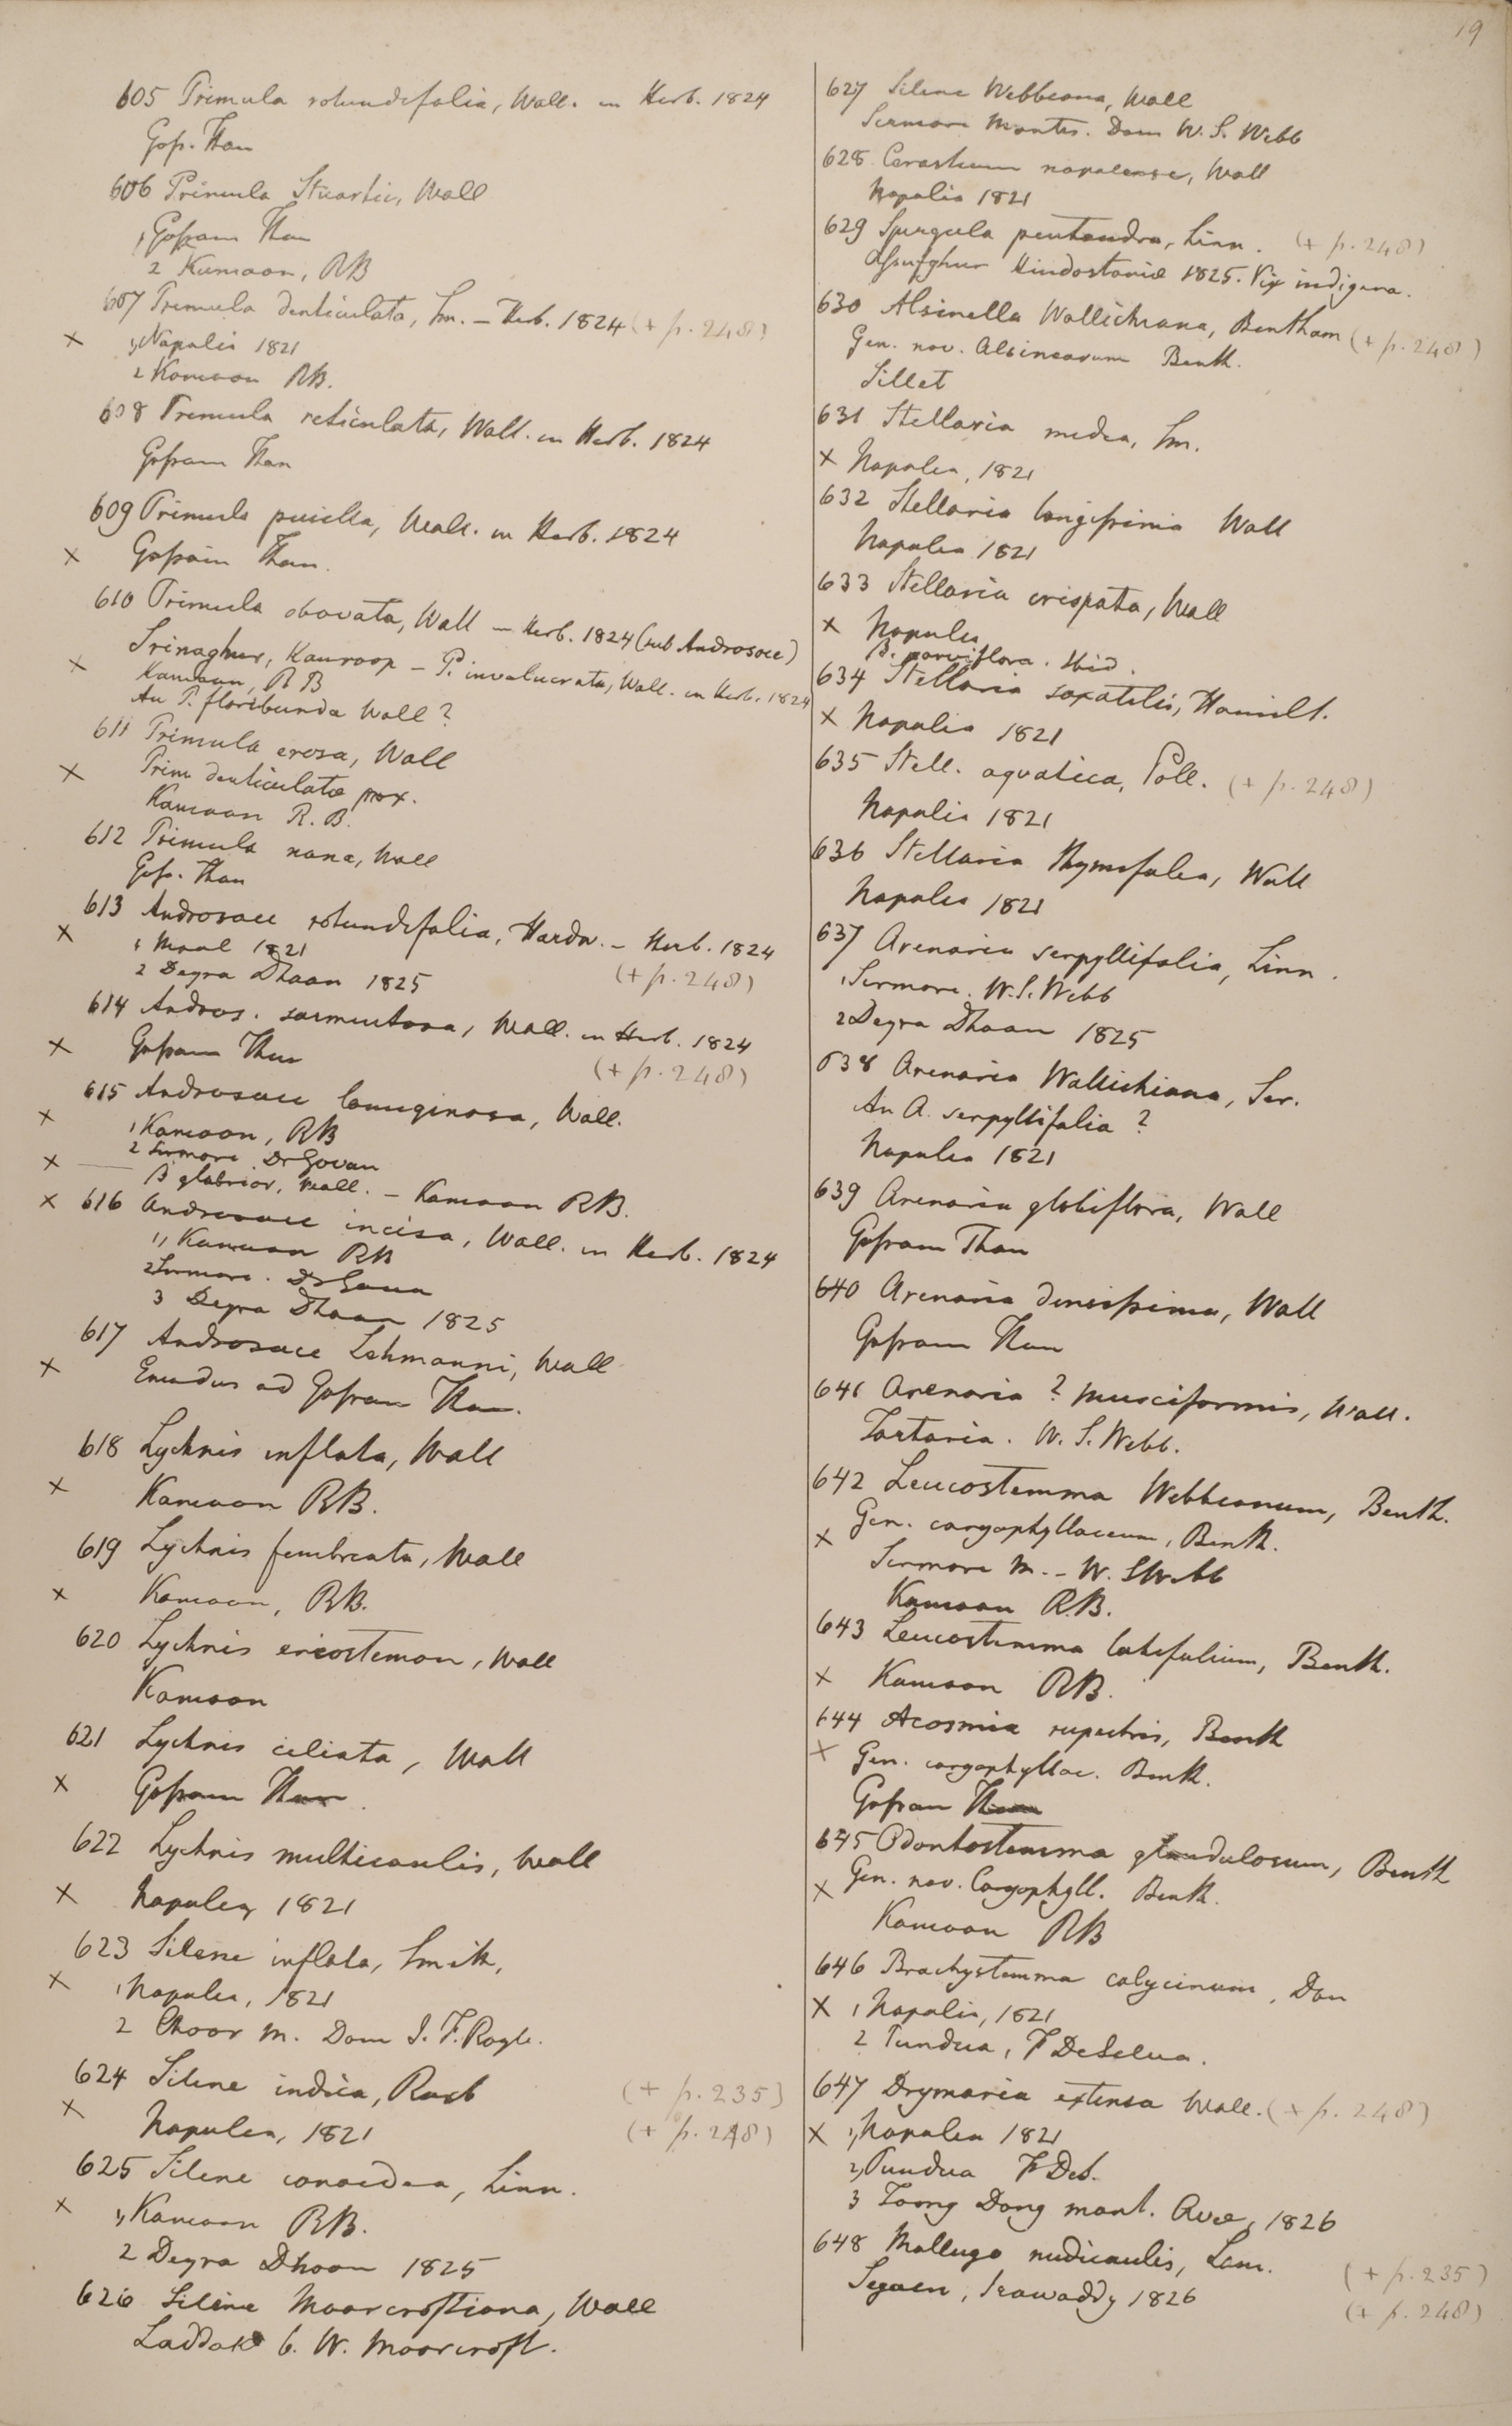 19
605 Primula rotundifolia, Wall. in Herb. 1824
Gos. Than
606 Primula Stuartii, Wall
1 Gossam Than
2 Kumaon, RB
607 Primula denticulata, Sm. – Herb. 1824 (+ p. 248)
× 1, Napalia 1821
2 Kamaon RB.
608 Primula reticulata, Wall. in Herb. 1824
Gossam Than
609 Primula pusilla, Wall. in Herb. 1824
× Gossain Than.
610 Primula obovata, Wall – Herb. 1824 (sub Androsace)
Srinaghur, Kauroop – P. involucrata, Wall. in Herb. 1824
× Kamaon, RB
An P. floribunda Wall ?
611 Primula erosa, Wall
× Prim denticulatæ prox.
Kamaon R. B.
612 Primula nana, Wall
Gos. Than
613 Androsace rotundifolia, Hardw. – Herb. 1824
× 1 1821
2 Deyra Dhoon 1825 (+ p. 248)
614 Andros. sarmentosa, Wall. in Herb. 1824
× Gossam Than (+ p. 248)
615 Androsace lanuginosa, Wall.
× 1 Kamaon, RB
2 Sirmore Dr Govan
× — B glabrior, Wall. – Kamaon RB.
× 616 Androsace incisa, Wall. in Herb. 1824
1, Kamaon RB
2 Sirmore. Dr Govan
3 Deyra Dhoon 1825
617 Androsace Lehmanni, Wall
× Emodus ad Gossam Than.
618 Lychnis inflata, Wall
× Kamaon RB.
619 Lychnis fimbriata, Wall
× Kamaon, RB.
620 Lychnis eriostemon, Wall
Kamaon
621 Lychnis ciliata, Wall
× Gossam Than
622 Lychnis multicaulis, Wall
× Napalia, 1821
623 Silene inflata, Smith,
× 1 Napalia, 1821
2 Choor m. Dom J. F. Royle.
624 Silene indica, Roxb (+ p. 235)
× Napalia, 1821 (+ p. 248)
625 Silene conoidea, Linn.
× 1, Kamaon RB.
2 Deyra Dhoon 1825
626 Silene Moorcroftiana, Wall
Laddak b. W. Moorcroft.
627 Silene Webbiana, Wall
Sirmore Montes. Dom W. S. Webb
628 Cerastium napalense, Wall
Napalia 1821
629 Spergula pentandra, Linn. (+ p. 248)
Hindostaniæ 1825. Vix indigena.
630 Alsinella Wallichiana, Bentham (+ p. 248)
Gen. nov. Alsinearum Benth.
Sillet
631 Stellaria media, Sm.
× Napalia, 1821
632 Stellaria longissima Wall
Napalia 1821
633 Stellaria crispata, Wall
× Napalia
B. parviflora. Ibid.
634 Stellaria saxatilis, Hamilt.
× Napalia 1821
635 Stell. aquatica, Poll. (+ p. 248)
Napalia 1821
636 Stellaria thymifolia, Wall
Napalia 1821
637 Arenaria serpyllifolia, Linn.
1 Sirmore. W. S. Webb
2 Deyra Dhoon 1825
638 Arenaria Wallichiana, Ser.
An A. serpyllifolia ?
Napalia 1821
639 Arenaria globiflora, Wall
Gossam Than
640 Arenaria densissima, Wall
Gossam Than
641 Arenaria ? musciformis, Wall.
Tartaria. W. S. Webb.
642 Leucostemma Webbianum, Benth.
Gen. caryophyllaceum, Benth.
× Sirmore M. – W. S Webb
Kamaon RB.
643 Leucostemma latifolium, Benth.
× Kamaon RB.
644 Acosmia rupestris, Benth
× Gen. caryophyllac. Benth.
Gossam Than
645 Odontostemma glandulosum, Benth
× Gen. nov. Caryophyll. Benth.
Kamaon RB
646 Brachystemma calycinum, Don
× 1 Napalia, 1821
2 Pundua, F DeSilva.
647 Drymaria extensa Wall. (+ p. 248)
× 1, Napalia 1821
2, Pundua F DeS.
3 Toong Dong mont. Avæ, 1826
648 Mollugo nudicaulis, Lam. (+ p. 235)
Segaen, Irawaddy 1826 (+ p. 248)